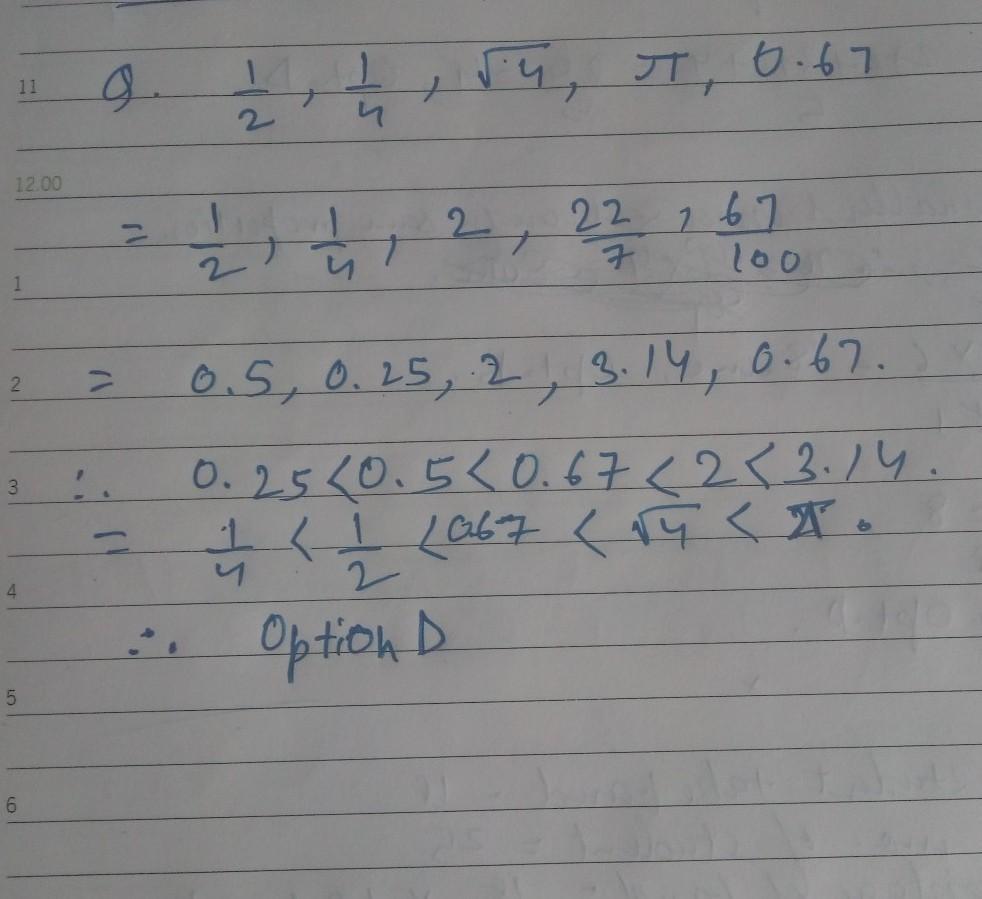 11 Q. 1/2, 1/4, √4, π, 0.67
12.00
= 1/2, 1/4, 2, 22/7, 67/100
1
2 = 0.5, 0.25, 2, 3.14, 0.67.
3 ∴ 0.25<0.5<0.67<2<3.14.
= 1/4 < 1/2 <0.67 < √4 < π.
4
∴ Option D
5
6